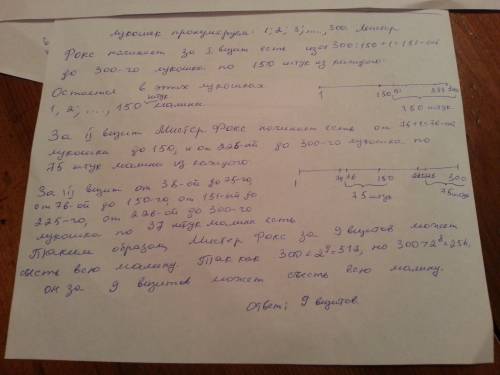 Лукошек пронумеруем: 1; 2; 3; ..., 300. Мистер
Фокс начинает за I визит есть из 300:150+1=151-ого
до 300-го лукошка по 150 штук из каждого.
Остается в этих лукошках
1, 2; ..., 150 штук малина.
1 150 151 300
150 штук
За ij визит Мистер Фокс начинает есть от 75+1=76-ой
лукошка до 150, и от 226-ой до 300-го лукошка по
75 штук малина из каждого.
1 75 76 150 225 226 300
75 штук 75 штук
За iij визит от 38-ой до 75-го,
от 76-ой до 150-го, от 151-ой до
225-го, от 226-ой до 300-го
лукошка по 37 штук малина есть
Таким образом, Мистер Фокс за 9 визитов может
съесть всю малину. Так как 300<2⁹=512, но 300>2⁸=256,
он за 9 визитов может съесть всю малину.
Ответ: 9 визитов